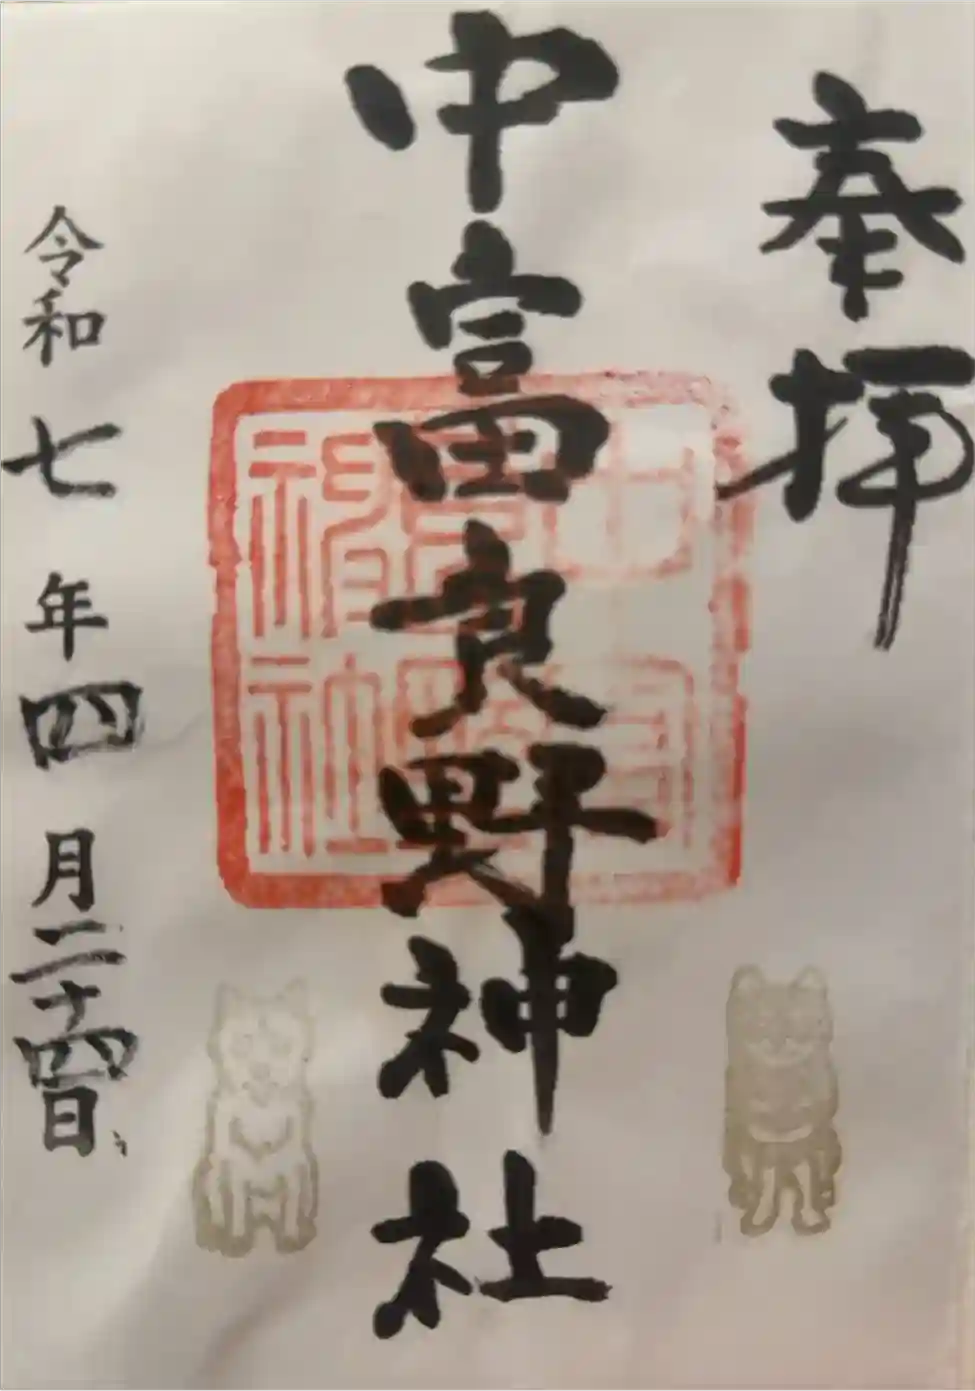 奉拝
中富良野神社
中富良野神社
令和七年四月二十四日